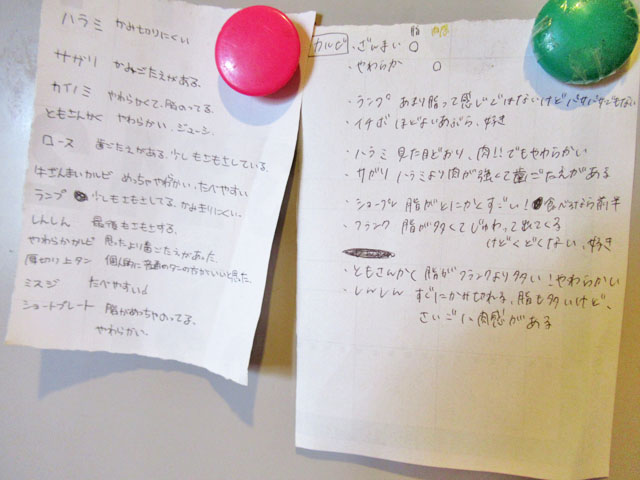 ハラミ かみ切りにくい
サガリ かみごたえがある。
カイノミ やわらかくて、脂のってる。
ともさんかく やわらかい。ジューシー
ロース 歯ごたえがある。少しもさもさしている。
牛ざんまいカルビ めっちゃやわかい。たべやすい
ランプ 少しもさもさしてる。かみきりにくい。
しんしん 最後もさもさする。
やわらかカルビ 思ったより歯ごたえがあった。
厚切り上タン 個人的に普通のタンの方がいいと思った。
ミスジ たべやすい
ショートプレート 脂がめっちゃのってる。
やわらかい。
脂 肉感
カルビ・ざんまい ○
・やわらか ○
・ランプ あまり脂って感じではないけどパサパサでもない
・イチボ ほどよいあぶら、好き
・ハラミ 見た目どおり、肉!!でもやわらかい
・サガリ ハラミより肉が強くて歯ごたえがある
・ショープレ 脂がとにかくすごい! 食べるなら前半
・フランク 脂が多くてじゅわって出てくる
けどくどくない、好き
・ともさんかく 脂がフランクより多い!やわらかい
・しんしん すぐにかみきれる、脂も多いけど、
さいごに肉感がある